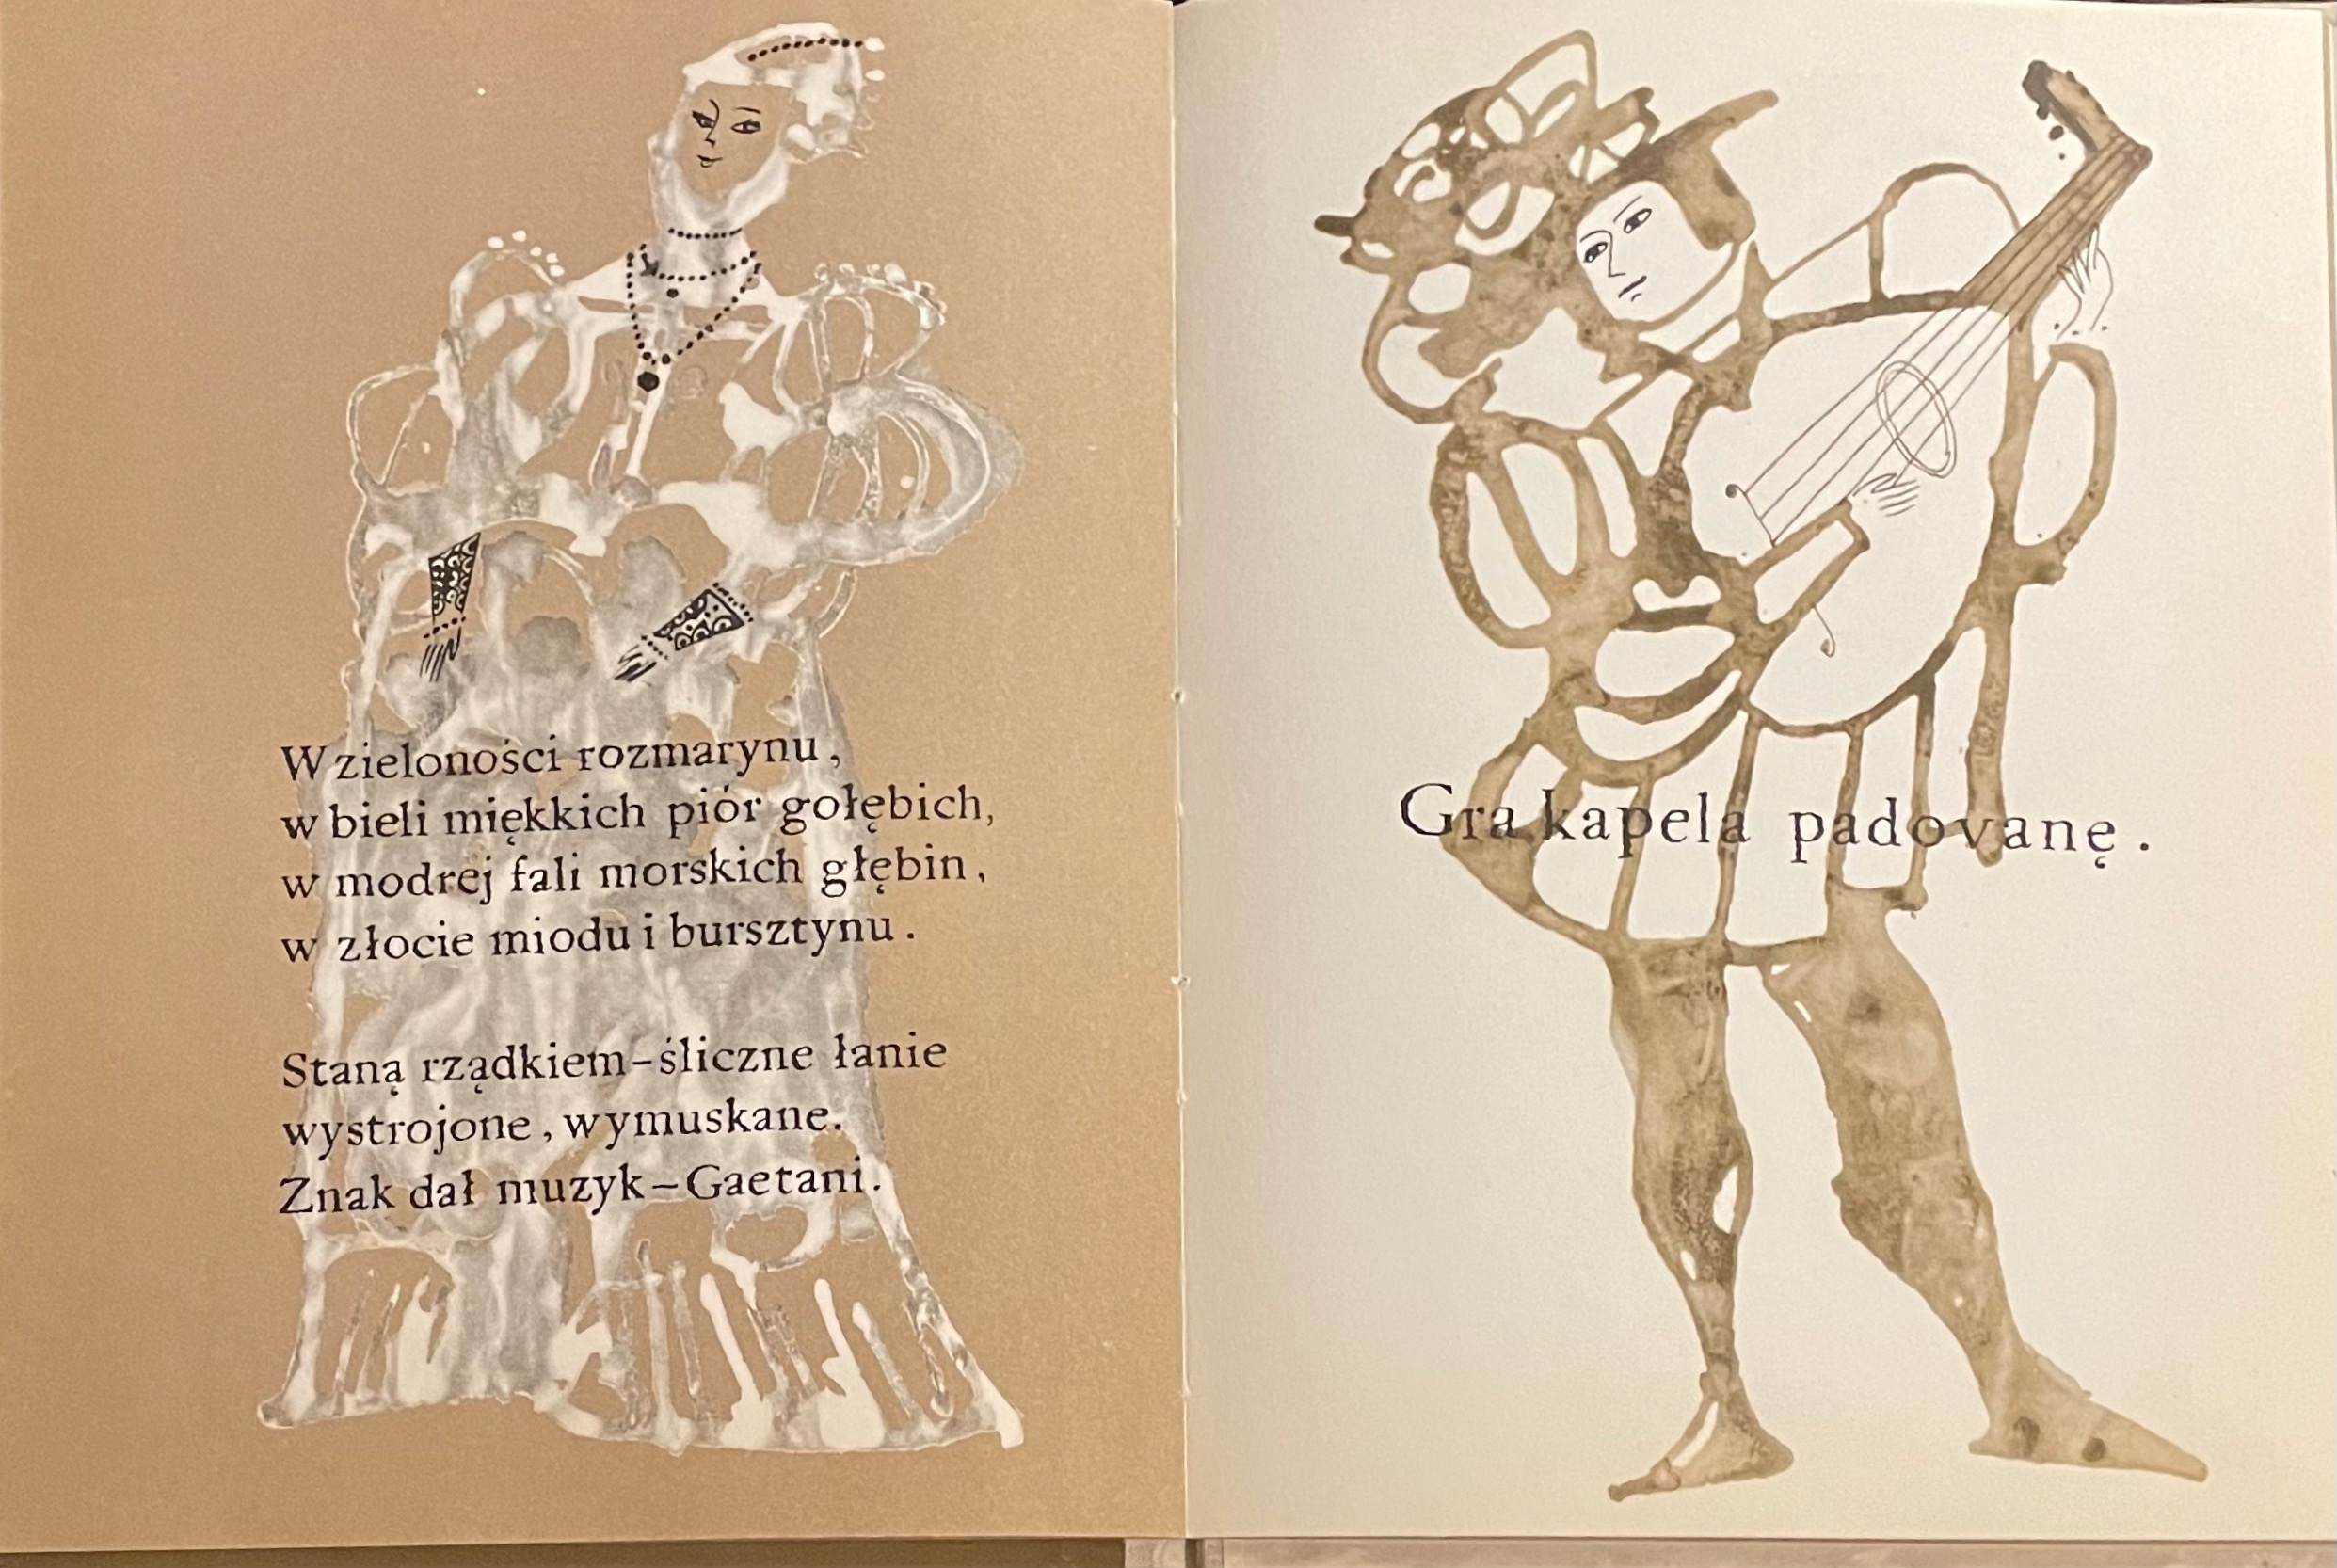 W zieloności rozmarynu,
w bieli miękkich piór gołębich,
w modrej fali morskich głębin,
w złocie miodu i bursztynu.
Staną rządkiem–śliczne łanie
wystrojone, wymuskane.
Znak dał muzyk–Gaetani.
Gra kapela padovanę.